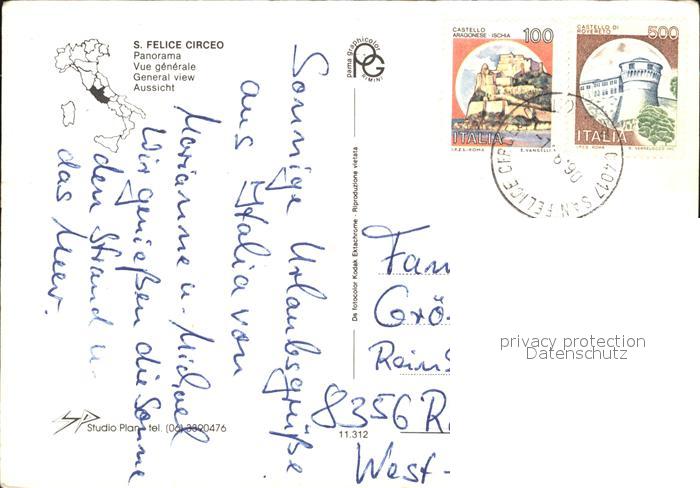 S. FELICE CIRCEO
Panorama
Vue générale
General view
Aussicht
Sonnige Urlaubsgrüße
aus Italia von
Marianne u. Michael
Wir genießen die Sonne
den Strand u.
das Meer.
Studio Plan - tel. (06) 3390476
pama graphicolor
RIMINI
Da fotocolor Kodak Ektachrome - Riproduzione vietata
11.312
CASTELLO
ARAGONESE - ISCHIA
100
ITALIA
I.P.Z.S. - ROMA
CASTELLO DI
ROVERETO
500
ITALIA
I.P.Z.S. ROMA
04017 SAN FELICE CIRC
Fam
Grö
8356 R
West-
privacy protection
Datenschutz